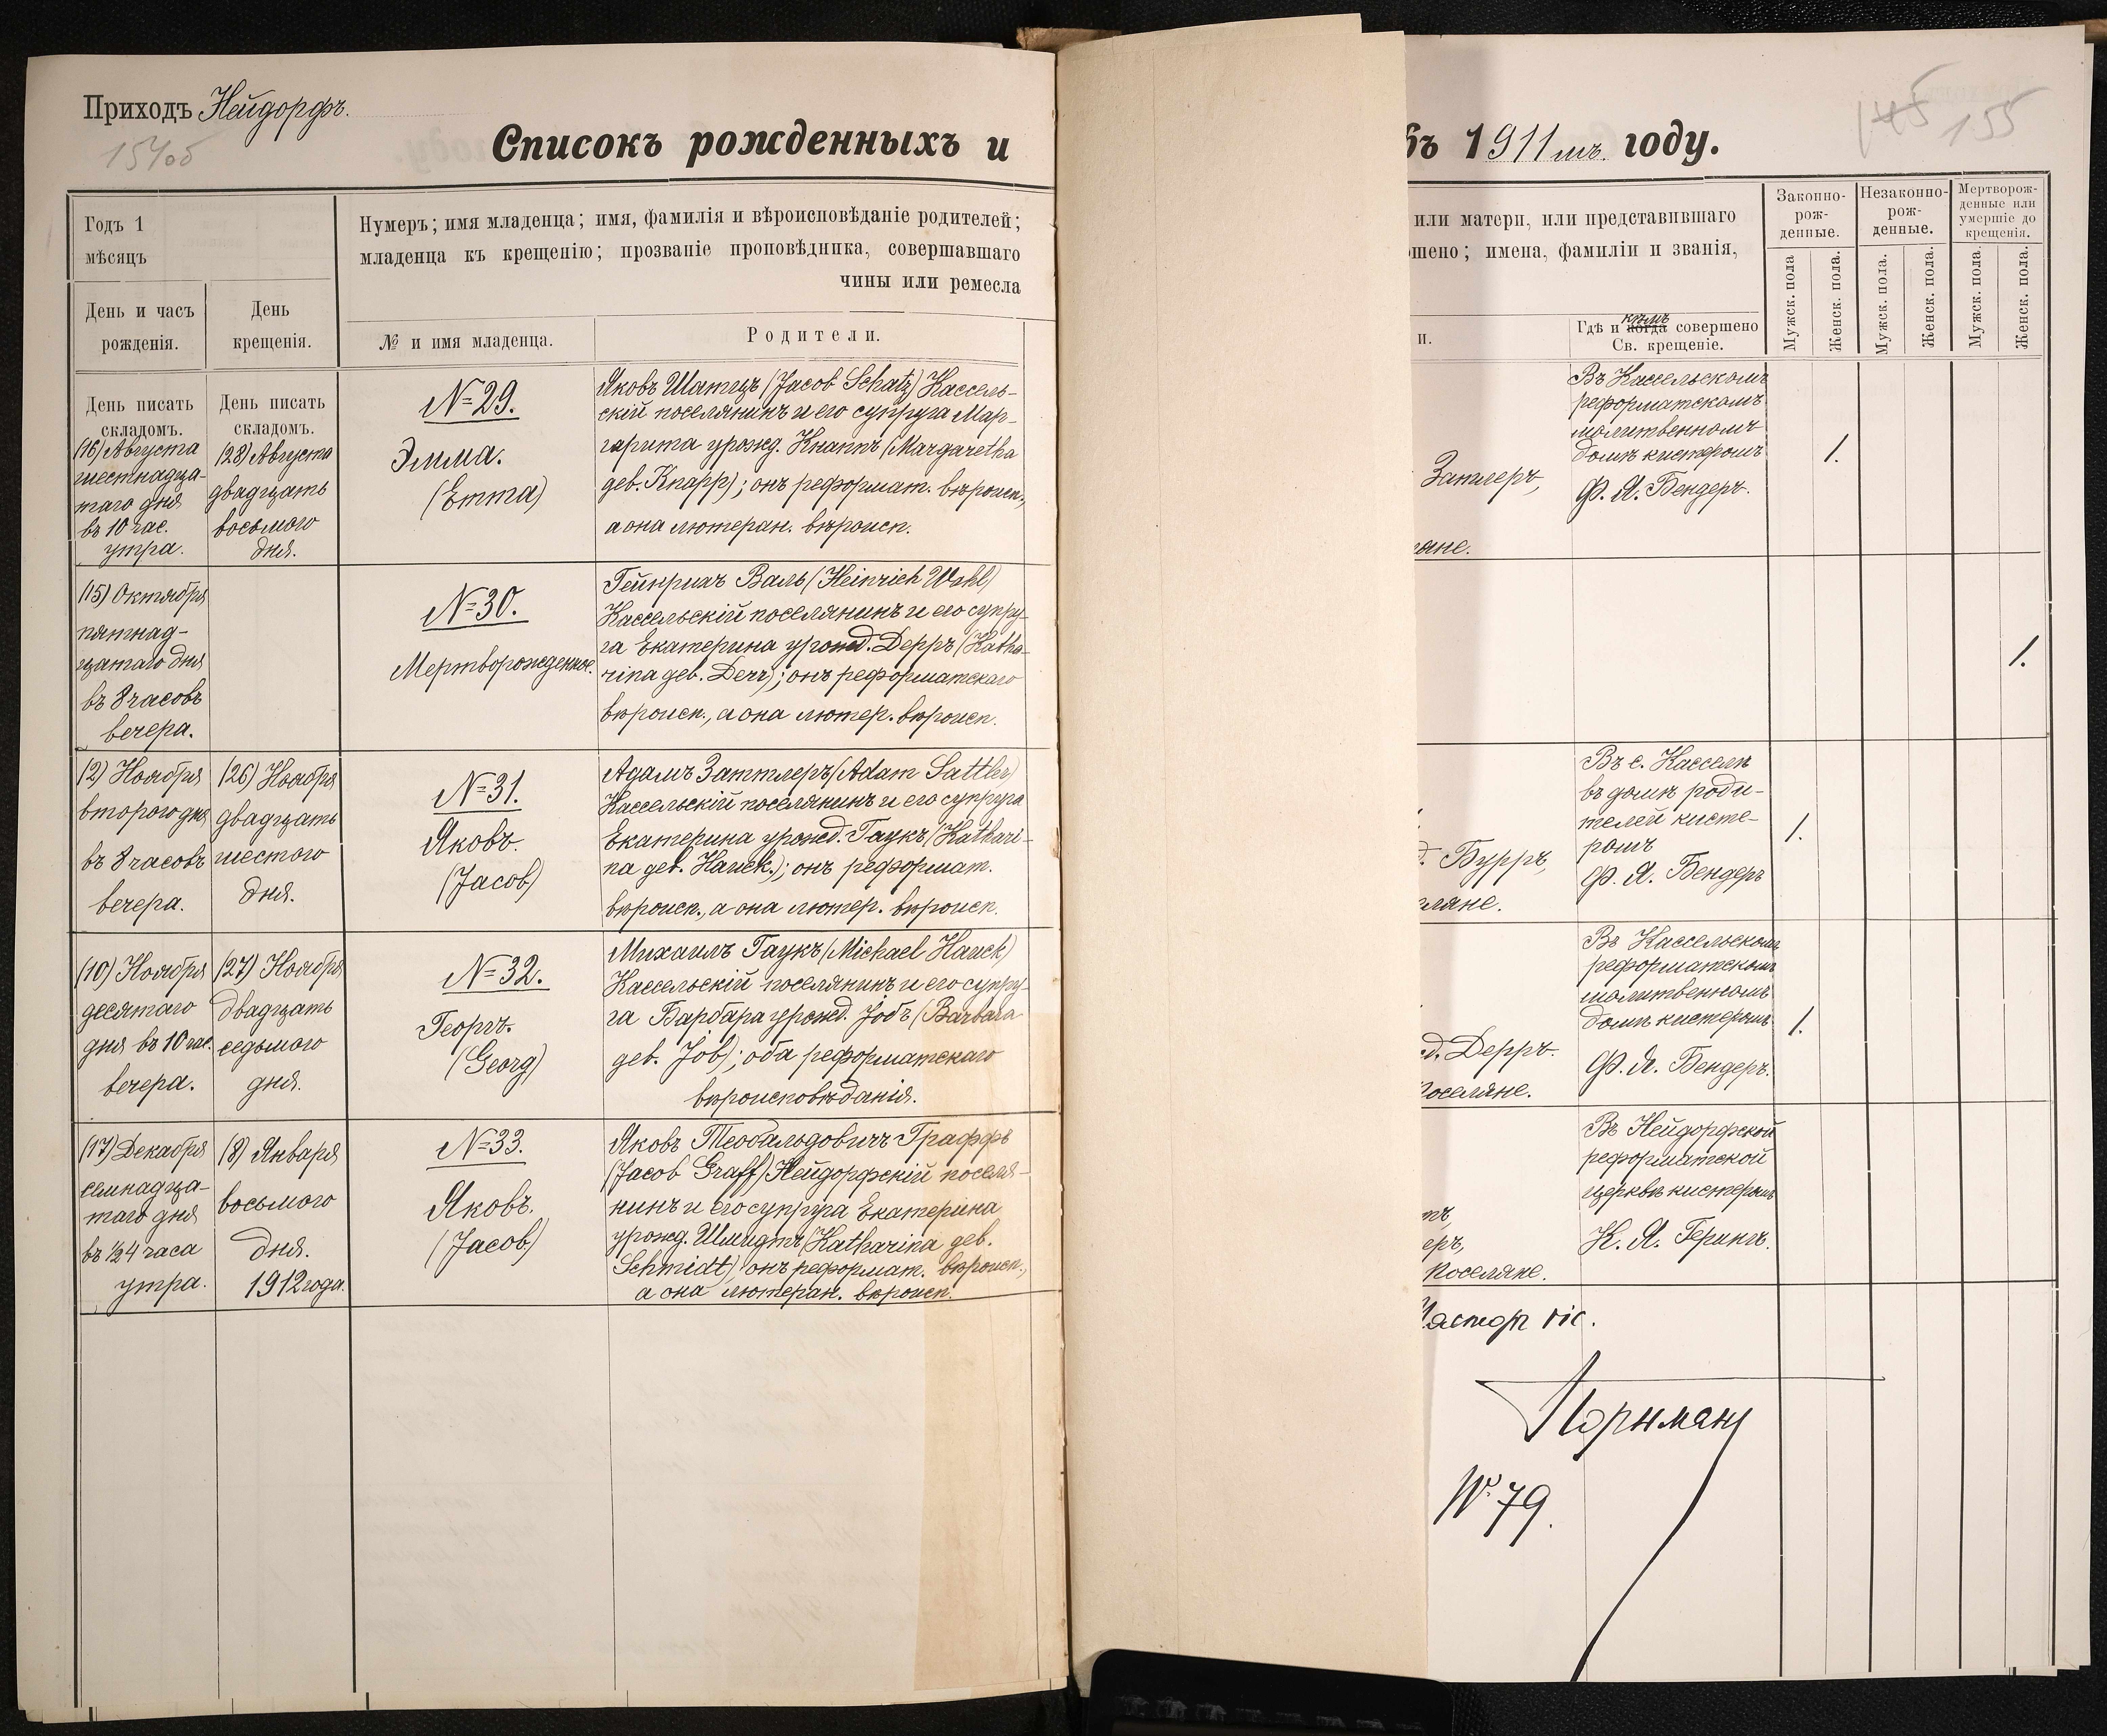 Приходъ Нейдорфъ.
154об
Списокъ рожденныхъ и
Годъ 1
мѣсяцъ
Нумеръ; имя младенца; имя, фамилія и вѣроисповѣданіе родителей;
младенца къ крещенію; прозваніе проповѣдника, совершавшаго
чины или ремесла
День и часъ
рожденія.
День
крещенія.
№ и имя младенца.
Родители.
День писать
складомъ.
День писать
складомъ.
(16) Августа
шестнадца-
таго дня
въ 10 час.
утра.
(28) Августа
двадцать
восьмого
дня.
№ 29.
Эмма.
(Emma)
Яковъ Шатцъ (Jacob Schatz) Кассель-
скій поселянинъ и его супруга Мар-
гарита урожд. Кнаппъ (Margaretha
geb. Knapp); онъ реформат. вѣроисп.,
а она лютеран. вѣроисп.
(15) Октября
пятнад-
цатаго дня
въ 8 часовъ
вечера.
№ 30.
Мертворожденное.
Гейнрихъ Валь (Heinrich Wahl)
Кассельскій поселянинъ и его супру-
га Екатерина урожд. Дерръ (Katha-
rina geb. Derr); онъ реформатскаго
вѣроисп., а она лютер. вѣроисп.
(2) Ноября
второго дня
въ 8 часовъ
вечера.
(26) Ноября
двадцать
шестого
дня.
№ 31.
Яковъ.
(Jacob)
Адамъ Заттлеръ (Adam Sattler)
Кассельскій поселянинъ и его супруга
Екатерина урожд. Гаукъ (Kathari-
na geb. Hauck.); онъ реформат.
вѣроисп., а она лютер. вѣроисп.
(10) Ноября
десятаго
дня въ 10 час.
вечера.
(27) Ноября
двадцать
седьмого
дня.
№ 32.
Георгъ.
(Georg)
Михаилъ Гаукъ (Michael Hauck)
Кассельскій поселянинъ и его супру-
га Барбара урожд. Jобъ (Barbara
geb. Job); оба реформатскаго
вѣроисповѣданія.
(17) Декабря
семнадца-
таго дня
въ ½4 часа
утра.
(8) Января
восьмого
дня.
1912 года.
№ 33.
Яковъ.
(Jacob)
Яковъ Теобальдовичъ Граффъ
(Jacob Graff) Нейдорфскій поселя-
нинъ и его супруга Екатерина
урожд. Шмидтъ (Katharina geb.
Schmidt) онъ реформат. вѣроисп.,
а она лютеран. вѣроисп.
въ 1911мъ. году.
145 155
или матери, или представившаго
шено; имена, фамиліи и званія,
и.
Гдѣ и когда кѣмъ совершено
Св. крещеніе.
Законно-
рож-
денные.
Незаконно-
рож-
денные.
Мертворож-
денные или
умершіе до
крещенія.
Мужск. пола
Женск. пола.
Мужск. пола.
Женск. пола.
Мужск. пола.
Женск. пола.
Затлеръ,
яне.
Въ Кассельскомъ
реформатскомъ
молитвенномъ
домѣ кистеромъ
Ф. Я. Бендеръ.
1.
1.
д. Бурръ,
ляне.
Въ с. Касселѣ
въ домѣ роди-
телей кисте-
ромъ
Ф. Я. Бендеръ
1.
д. Дерръ.
Поселяне.
Въ Кассельскомъ
реформатскомъ
молитвенномъ
домѣ кистеромъ
Ф. Я. Бендеръ.
1.
тъ,
еръ,
Поселяне.
Въ Нейдорфской
реформатской
церквѣ кистеромъ
К. Я. Герингъ.
Пасторъ vic.
№ 79.